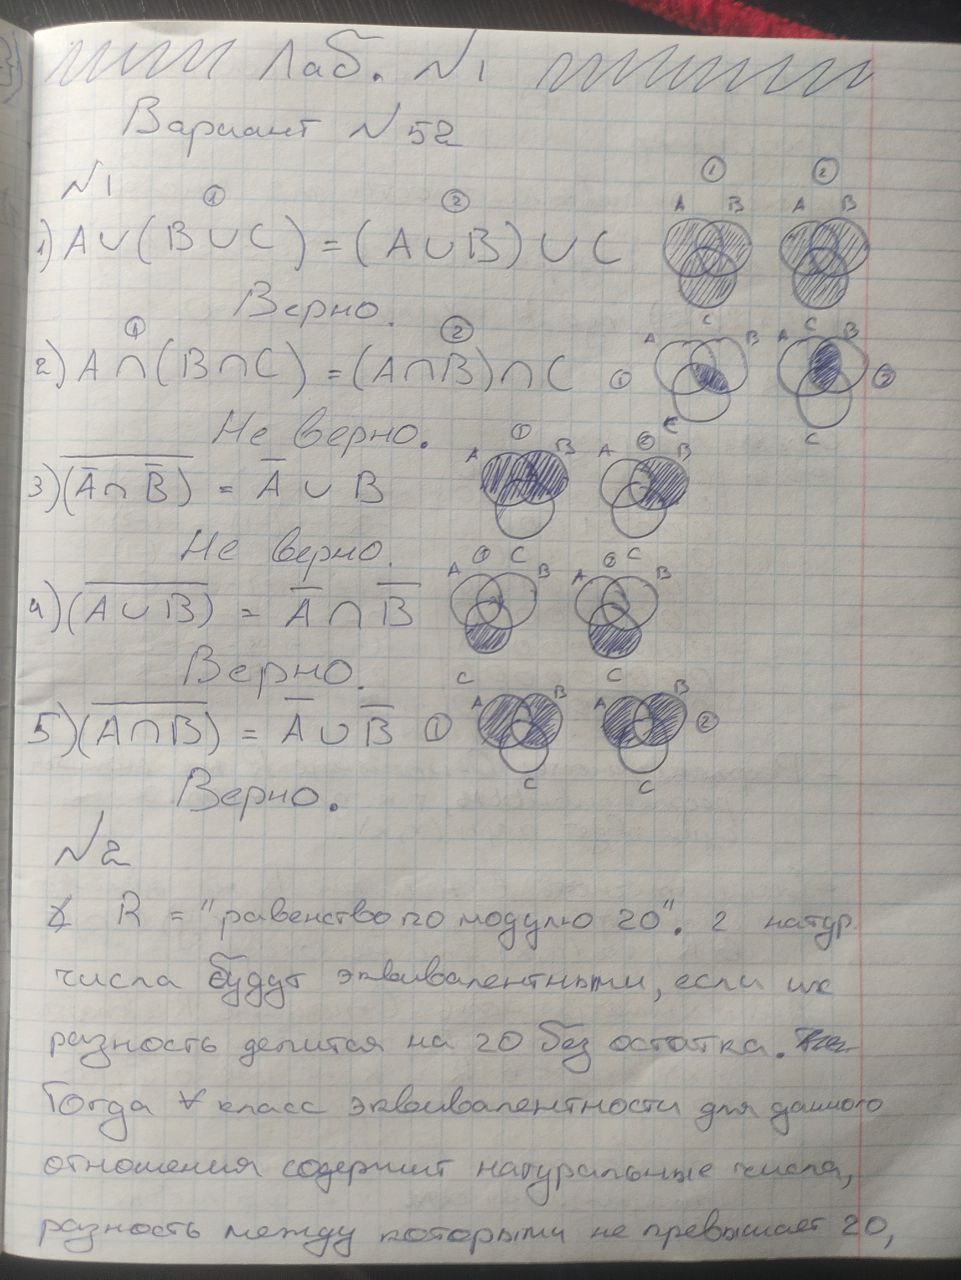 Лаб. №1
Вариант №52
№1
1) A∪(B∪C) = (A∪B)∪C
① ②
① ②
A B A B
C C
Верно.
2) A∩(B∩C) = (A∩B)∩C
① ②
① A B A B ②
C C
Не верно.
3) (A̅∩B̅)̅ = A̅ ∪ B
① ②
A B A B
Не верно.
4) (A∪B)̅ = A̅ ∩ B̅
① C ② C
A B A B
C C
Верно.
5) (A∩B)̅ = A̅ ∪ B̅
① A B A B ②
C C
Верно.
№2
R = "равенство по модулю 20". 2 натур.
числа будут эквивалентными, если их
разность делится на 20 без остатка.
Тогда ∀ класс эквивалентности для данного
отношения содержит натуральные числа,
разность между которыми не превышает 20,